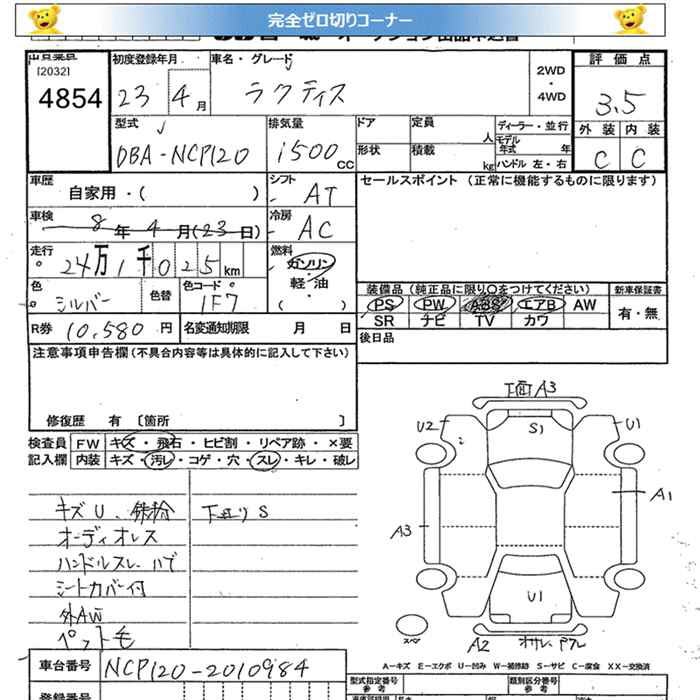 完全ゼロ切りコーナー
出品番号 初度登録年月 車名・グレード 2WD・4WD 評価点
[2032]
4854 23 4月 ラクティス 3.5
型式 排気量 ドア 定員 人 ディーラー・並行 外装 内装
DBA-NCP120 1500CC 形状 積載 kg モデル年式 年 ハンドル 左・右 C C
車歴 自家用・( ) シフト AT セールスポイント (正常に機能するものに限ります)
車検 8年4月(23日) 冷房 AC
走行 24万1千025km 燃料 ガソリン・軽油・( )
色 シルバー 色替 色コード 1F7
装備品(純正品に限り〇をつけてください) 新車保証書
PS PW ABS エアB AW 有・無
SR ナビ TV カワ
R券 10,580円 名変通知期限 月 日 後日品
注意事項申告欄(不具合内容等は具体的に記入して下さい)
修復歴 有 [箇所 ]
検査員記入欄 FW キズ・飛石・ヒビ割・リペア跡・×要
内装 キズ・汚レ・コゲ・穴・スレ・キレ・破レ
キズU、鉄粉 下廻りS
オーディオレス
ハンドルスレ、ハゲ
シートカバー付
外AW
ペット毛
A3
U2 S1 U1
A1
A3
U1
スペア A2
A-キズ E-エクボ U-凹み W-補修跡 S-サビ C-腐食 XX-交換済
車台番号 NCP120-2010984
型式指定番号 参考 類別区分番号 参考
登録番号